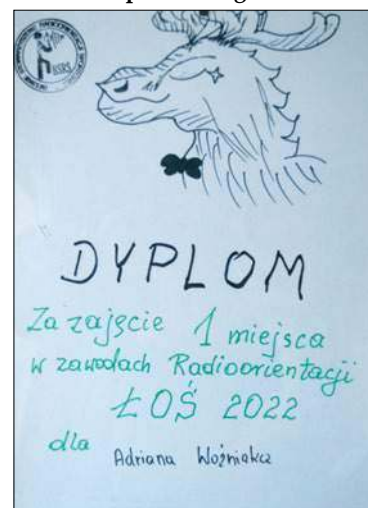 DYPLOM
Za zajęcie 1 miejsca
w zawodach Radioorientacji
ŁOŚ 2022
dla
Adriana Woźniaka